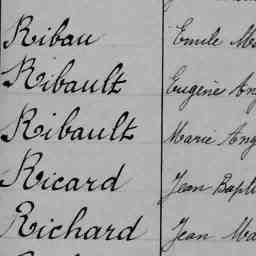 Ribau Emile Ma
Ribault Eugène An
Ribault Marie Ang
Ricard Jean Bapti
Richard Jean Ma